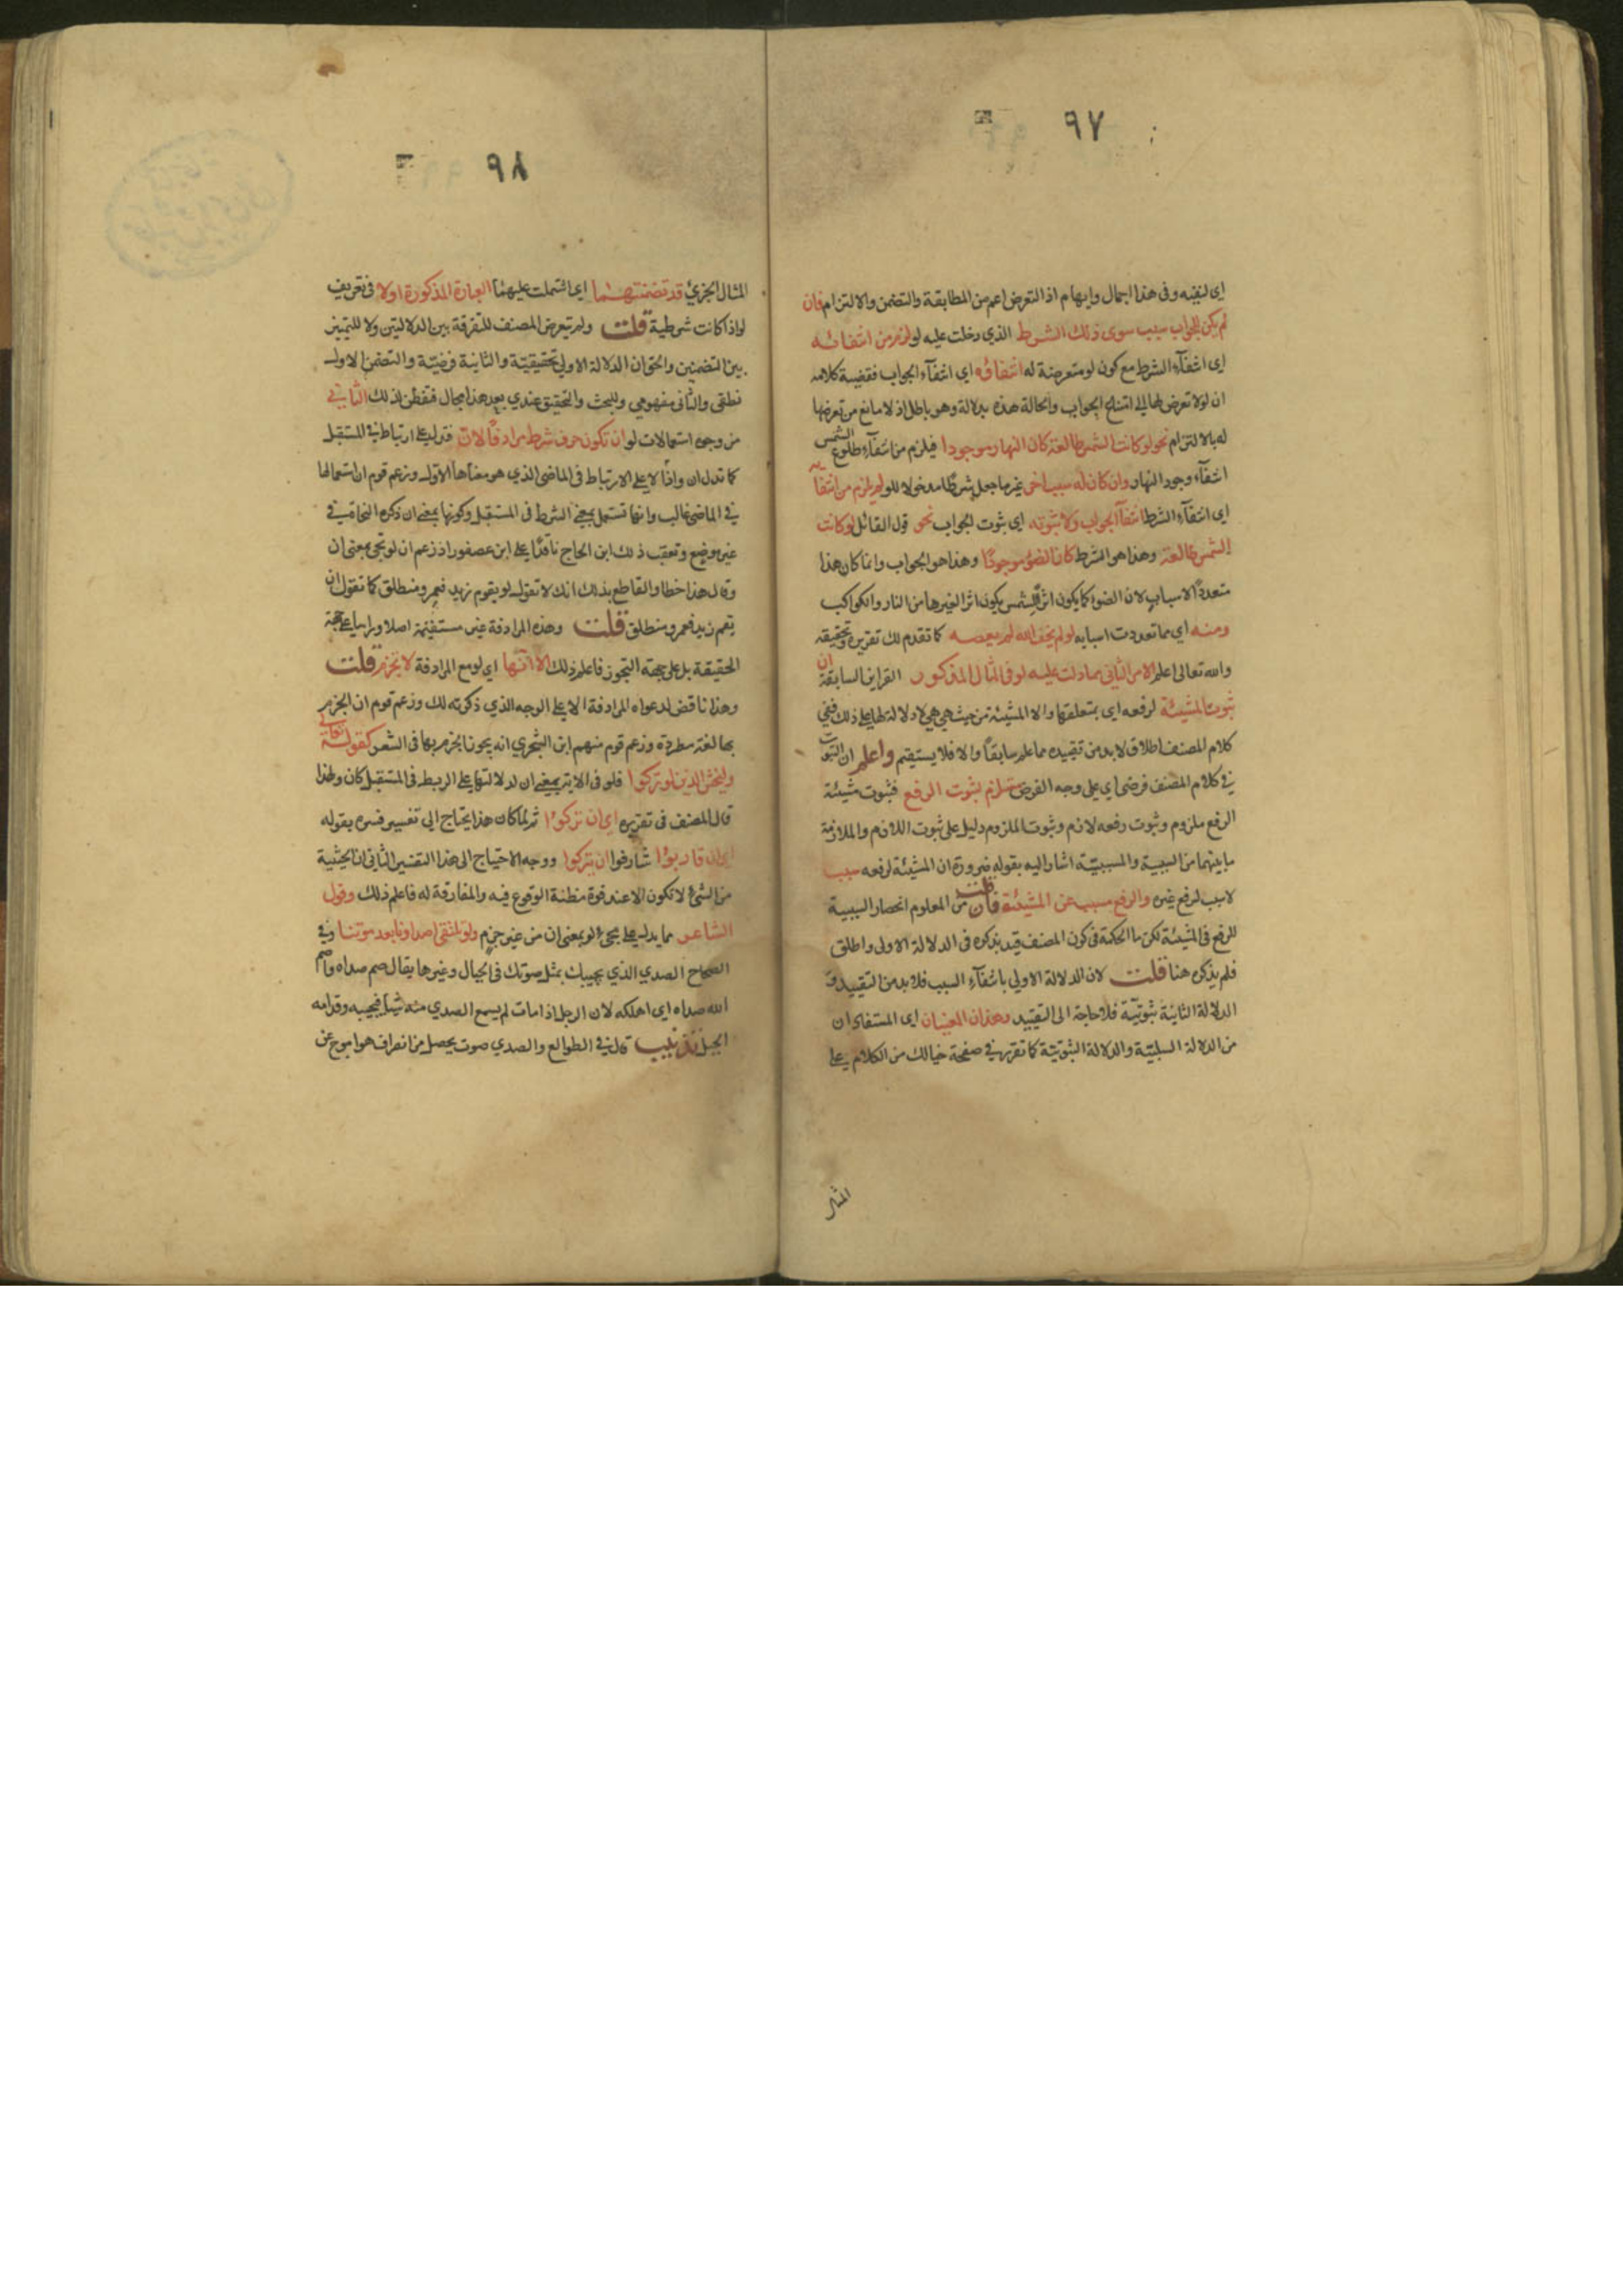 ٩٧
اى لنفيه وفى هذا اجمال وايهام اذ التعرض اعم من المطابقة والتضمن والالتزام فان
لم يكن للجواب سبب سوى ذلك الشرط الذي دخلت عليه لو لزم من انتفائه
اى انتفآء الشرط مع كون لو متعرضة له انتفاؤه اى انتفآء الجواب فقضية كلامه
ان لو لا تعرض لها الى امتناع الجواب والحالة هذه بدلالة وهو باطل اذ لا مانع من تعرضها
له بالالتزام نحو لو كانت الشمس طالعة كان النهار موجودا فيلزم من انتفآء طلوع الشمس
انتفآء وجود النهار وان كان له سبب اخر غير ما جعل شرطا مدخولا للو لم يلزم من انتفائه
اى انتفآء الشرط انتفآ الجواب ولا ثبوته اى ثبوت الجواب نحو قول القائل لو كانت
الشمس طالعة وهذا هو الشرط كان الضوء موجودًا وهذا هو الجواب وانما كان هذا
متعدد الاسباب لان الضوء كما يكون اثر الشمس يكون اثرا لغيرها من النار والكواكب
ومنه اي مما تعددت اسبابه لو لم يخف الله لم يعصه كما تقدم لك تقريره وتحقيقه
والله تعالى اعلم الامر الثاني مما دلت عليه لو فى المثال المذكور القراين السابقة ان
ثبوت المشيئة لرفعه اى بمتعلقها والا المشيئة من حيث هي هي لا دلالة لها على ذلك ففي
كلام المصنف اطلاق لا بد من تقييده مما علم سابقاً والا فلا يستقيم واعلم ان الثبوت
في كلام المصنف فرضى اي على وجه الفرض مستلزم لثبوت الرفع فثبوت مشيئة
الرفع ملزوم وثبوت رفعه لازم وثبوت الملزوم دليل على ثبوت اللازم والملازمة
ما بينهما من السببية والمسببيّة اشار اليه بقوله ضرورة ان المشيئة لرفعه سبب
لا سبب لرفع غيره والرفع مسبب عن المشيئة فان قلت من المعلوم انحصار السببية
للرفع فى المشيئة لكن ما الحكمة فى كون المصنف قيد بذكره فى الدلالة الاولى واطلق
فلم يذكره هنا قلت لان الدلالة الاولي بانتفآء السبب فلا بد من التقييد و
الدلالة الثانية ثبوتيّة فلا حاجة الى التقييد وهذان المعنيان اى المستفادان
من الدلالة السلبيّة والدلالة الثبوتيّة كما تقرر في صفحة خيالك من الكلام على
المثال
٩٨
المثال الجزي قد تضمنتهما اى اشتملت عليهما العبارة المذكورة اولا فى تعريف
لو اذا كانت شرطية قلت ولم يتعرض المصنف للتفرقة بين الدلالتين ولا للتمييز
بين التضمنين والحق ان الدلالة الاولى تحقيقيّة والثانية فرضيّة والتضمن الاول
نطقى والثانى مفهومي وللبحث والتحقيق عندي بعد هذا مجال فتفطن لذلك الثاني
من وجوه استعمالات لو ان تكون حرف شرط مرادفاً لان فتدل على ارتباط في المستقبل
كما تدل ان واذا لا على الارتباط فى الماضى الذي هو معناها الاول وزعم قوم ان استعمالها
في الماضى غالب وانها تستعمل بمعنى الشرط فى المستقبل وكونها بمعنى ان ذكره النحاة في
غير موضع وتعقب ذلك ابن الحاج ناقدًا على ابن عصفور اذ زعم ان لو تجي بمعنى ان
وقال هذا خطا والقاطع بذلك انك لا تقول لو يقوم زيد فعمرو منطلق كما تقول ان
يقم زيد فعمرو منطلق قلت وهذه المرادفة غير مستقيمة اصلا وراسا على جهة
الحقيقة بل على جهة التجوز فاعلم ذلك الا انها اي لو مع المرادفة لا تجزم قلت
وهذا ناقض لدعواه المرادفة الا على الوجه الذي ذكرته لك وزعم قوم ان الجزم
بها لغة مطردة وزعم قوم منهم ابن الشجري انه يجوز الجزم بها فى الشعر كقوله تعالى
وليخش الذين لو تركوا فلو فى الاية بمعنى ان لدلالتها على الربط فى المستقبل كان ولهذا
قال المصنف فى تقريره اى ان تركوا ثم لما كان هذا يحتاج الى تفسير فسره بقوله
اى ان قاربوا شارفوا ان يتركوا ووجه الاحتياج الى هذا التفسير الثانى ان الخشية
من الشئ لا تكون الا عند قوة مظنة الوقوع فيه والمفارقة له فاعلم ذلك وقول
الشاعر مما يدل على مجئ لو بمعنى ان من غير جزم ولو تلتقى اصداونا بعد موتنا وفي
الصحاح الصدي الذي يجيبك بمثل صوتك فى الجبال وغيرها يقال صم صداه واصم
الله صداه اى اهلكه لان الرجل اذا مات لم يسمع الصدي منه شيا فيجيبه وقدامه
الجبل تذنيب قال في الطوالع والصدي صوت يحصل من انصراف هوا موج عن